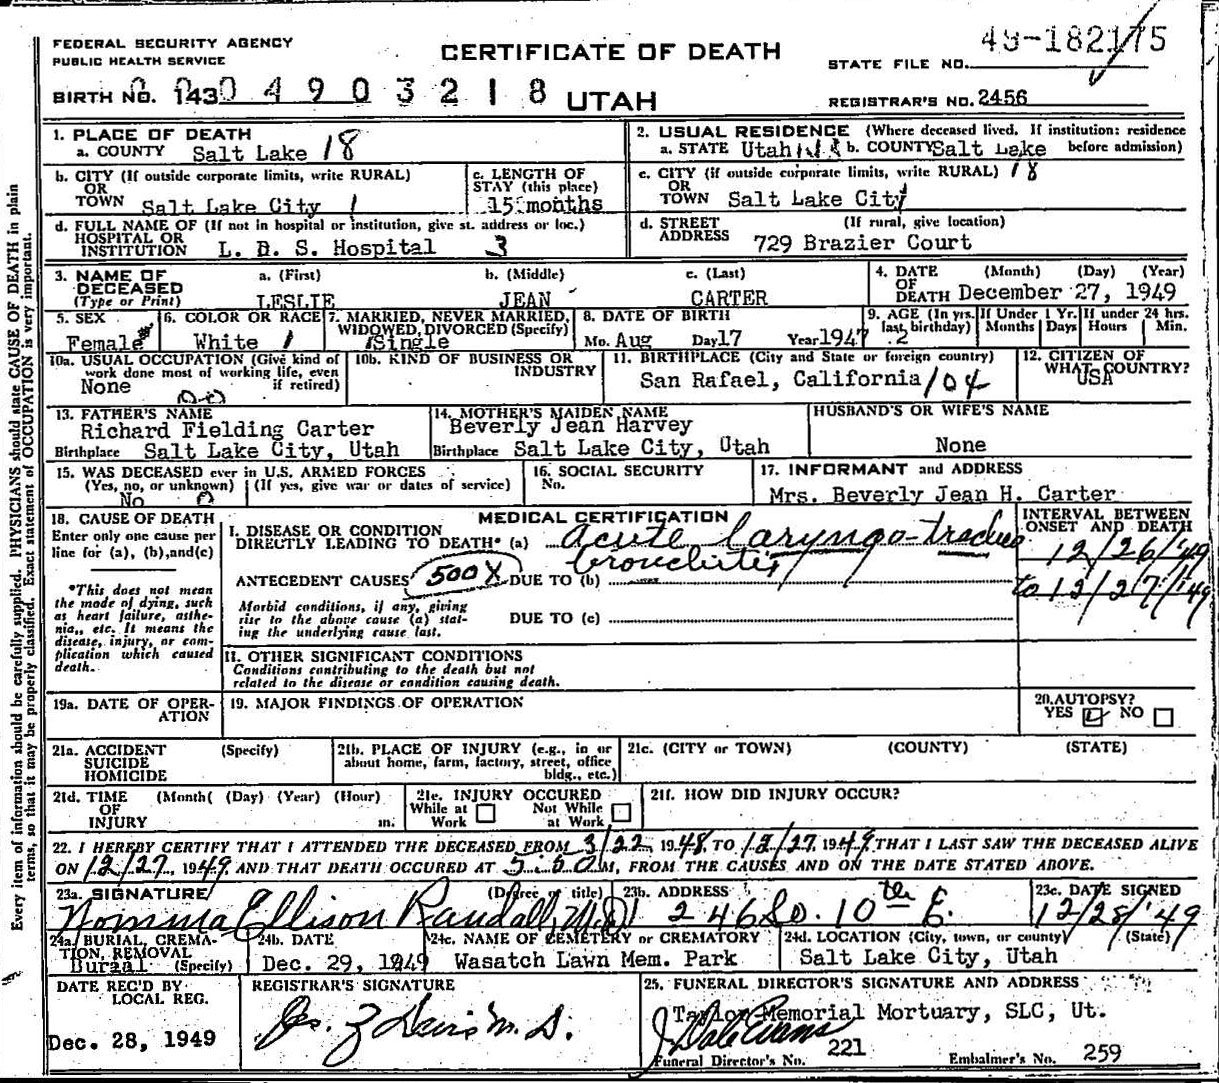 49-182175
FEDERAL SECURITY AGENCY
PUBLIC HEALTH SERVICE
CERTIFICATE OF DEATH
STATE FILE NO.
BIRTH NO. 1430 4903218 UTAH
REGISTRAR'S NO. 2456
Every item of information should be carefully supplied. PHYSICIANS should state CAUSE OF DEATH in plain
terms, so that it may be properly classified. Exact statement of OCCUPATION is very important.
1. PLACE OF DEATH
a. COUNTY Salt Lake 18
2. USUAL RESIDENCE (Where deceased lived. If institution: residence
a. STATE Utah b. COUNTY Salt Lake before admission)
b. CITY (If outside corporate limits, write RURAL)
OR
TOWN Salt Lake City 1
c. LENGTH OF
STAY (this place)
15 months
c. CITY (if outside corporate limits, write RURAL) 18
OR
TOWN Salt Lake City
d. FULL NAME OF (If not in hospital or institution, give st. address or loc.)
HOSPITAL OR
INSTITUTION L. D. S. Hospital 3
d. STREET (If rural, give location)
ADDRESS 729 Brazier Court
3. NAME OF
DECEASED
(Type or Print)
a. (First) b. (Middle) c. (Last)
LESLIE JEAN CARTER
4. DATE (Month) (Day) (Year)
OF
DEATH December 27, 1949
5. SEX
Female
6. COLOR OR RACE
White 1
7. MARRIED, NEVER MARRIED,
WIDOWED, DIVORCED (Specify)
Single
8. DATE OF BIRTH
Mo. Aug Day 17 Year 1947
9. AGE (In yrs. last birthday) If Under 1 Yr. If under 24 hrs.
Months Days Hours Min.
2
10a. USUAL OCCUPATION (Give kind of
work done most of working life, even
if retired)
None
10b. KIND OF BUSINESS OR
INDUSTRY
11. BIRTHPLACE (City and State or foreign country)
San Rafael, California /04
12. CITIZEN OF
WHAT COUNTRY?
USA
13. FATHER'S NAME
Richard Fielding Carter
Birthplace Salt Lake City, Utah
14. MOTHER'S MAIDEN NAME
Beverly Jean Harvey
Birthplace Salt Lake City, Utah
HUSBAND'S OR WIFE'S NAME
None
15. WAS DECEASED ever in U.S. ARMED FORCES
(Yes, no, or unknown) (If yes, give war or dates of service)
No 0
16. SOCIAL SECURITY
No.
17. INFORMANT and ADDRESS
Mrs. Beverly Jean H. Carter
18. CAUSE OF DEATH
Enter only one cause per
line for (a), (b), and (c)
*This does not mean
the mode of dying, such
as heart failure, asthe-
nia, etc. It means the
disease, injury, or com-
plication which caused
death.
MEDICAL CERTIFICATION
I. DISEASE OR CONDITION
DIRECTLY LEADING TO DEATH* (a) Acute laryngo-tracheo
bronchitis
ANTECEDENT CAUSES 500X DUE TO (b)
Morbid conditions, if any, giving
rise to the above cause (a) stat-
ing the underlying cause last.
DUE TO (c)
INTERVAL BETWEEN
ONSET AND DEATH
12/26/'49
to 12/27/'49
II. OTHER SIGNIFICANT CONDITIONS
Conditions contributing to the death but not
related to the disease or condition causing death.
19a. DATE OF OPER-
ATION
19. MAJOR FINDINGS OF OPERATION
20. AUTOPSY?
YES NO
21a. ACCIDENT (Specify)
SUICIDE
HOMICIDE
21b. PLACE OF INJURY (e.g., in or
about home, farm, factory, street, office
bldg., etc.)
21c. (CITY or TOWN) (COUNTY) (STATE)
21d. TIME (Month( (Day) (Year) (Hour)
OF
INJURY m.
21e. INJURY OCCURED
While at Work Not While at Work
21f. HOW DID INJURY OCCUR?
22. I HEREBY CERTIFY THAT I ATTENDED THE DECEASED FROM 3/22, 1948 TO 12/27, 1949 THAT I LAST SAW THE DECEASED ALIVE
ON 12/27, 1949, AND THAT DEATH OCCURED AT 5:50 M, FROM THE CAUSES AND ON THE DATE STATED ABOVE.
23a. SIGNATURE (Degree or title)
Nomma Ellison Randall, M.D.
23b. ADDRESS
246 So. 10th E.
23c. DATE SIGNED
12/28/'49
24a. BURIAL, CREMA-
TION, REMOVAL
Burial (Specify)
24b. DATE
Dec. 29, 1949
24c. NAME OF CEMETERY or CREMATORY
Wasatch Lawn Mem. Park
24d. LOCATION (City, town, or county) (State)
Salt Lake City, Utah
DATE REC'D BY
LOCAL REG.
Dec. 28, 1949
REGISTRAR'S SIGNATURE
25. FUNERAL DIRECTOR'S SIGNATURE AND ADDRESS
Taylor Memorial Mortuary, SLC, Ut.
J Dale Evans
Funeral Director's No. 221 Embalmer's No. 259